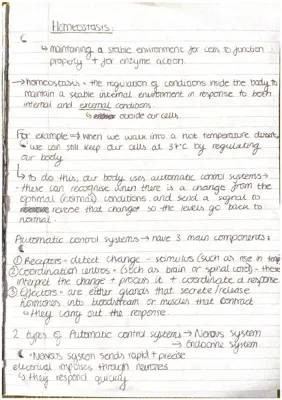 Homeostasis:
↳ maintaining a stable environment for cells to function
properly + for enzyme action.
→ homeostasis = the regulation of conditions inside the body to
maintain a stable internal environment in response to both
internal and external conditions
↳ outside our cells.
For example ⇒ when we walk into a hot temperature
we can still keep our cells at 37°C by regulating
our body
↳ to do this, our body uses automatic control systems →
- these can recognise when there is a change from the
optimal (normal) conditions and send a signal to
reverse that change so the levels go back to
normal.
Automatic control systems → have 3 main components:
① Receptors - detect change - stimulus (such as rise in temp)
② Coordination centres - (such as brain or spinal cord) - these
interpret the change + process it + coordinate a response
③ Effectors - are either glands that secrete/release
hormones into bloodstream or muscles that contract
↳ they carry out the response.
2 types of Automatic control systems → Nervous system
→ Endocrine system
• Nervous system sends rapid + precise
electrical impulses through neurones
↳ they respond quickly